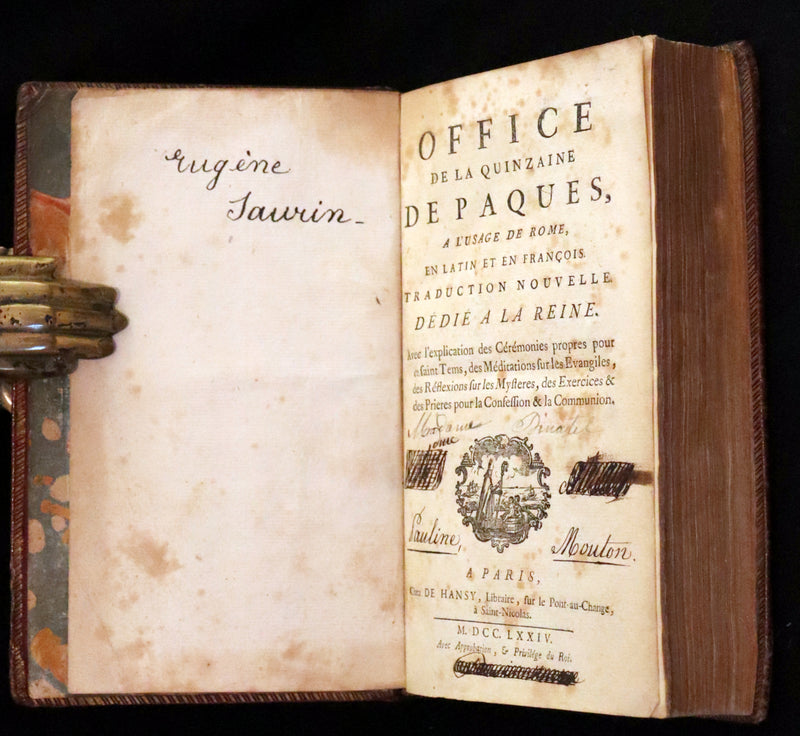 Eugène
Saurin -
OFFICE
DE LA QUINZAINE
DE PAQUES,
A L'USAGE DE ROME,
EN LATIN ET EN FRANÇOIS.
TRADUCTION NOUVELLE
DÉDIÉ A LA REINE.
Avec l'explication des Cérémonies propres pour
ce saint Tems, des Méditations sur les Evangiles,
des Réflexions sur les Mysteres, des Exercices &
des Prieres pour la Confession & la Communion.
Madame
Pauline, Mouton.
A PARIS,
Chez DE HANSY, Libraire, sur le Pont-au-Change,
à Saint-Nicolas.
M. DCC. LXXIV.
Avec Approbation, & Privilége du Roi.